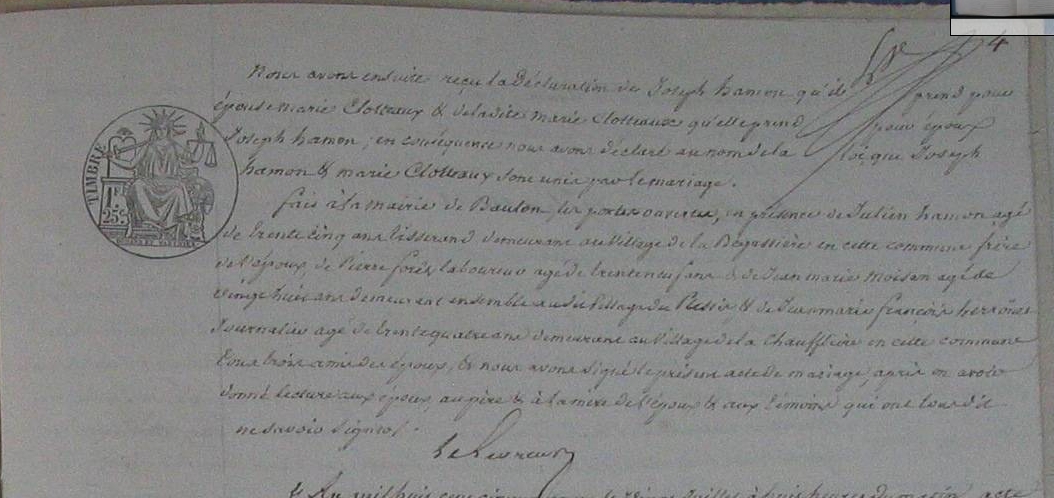 4
Nous avons ensuite reçu la Déclaration de Joseph hamon qu'il prend pour
épouse marie Clotteaux & de ladite marie Clotteaux qu'elle prend pour époux
Joseph hamon, en conséquence nous avons déclaré au nom de la loi que Joseph
hamon & marie Clotteaux sont unis par le mariage.
fait à la mairie de Baulon, les portes ouvertes, en présence de Julien hamon agé
de trente cinq ans tisserand demeurant au village de la Bégassière en cette commune frère
de l'époux, de Pierre laboureur agé de trente neuf ans & de Jean marie Moison agé de
vingt huit ans demeurent ensemble au dit village du Plessis & de Jean marie françois
Journalier agé de trente quatre ans demeurant au village de la Chaufflière en cette commune
tous trois amis des époux, & nous avons signé le présent acte de mariage, après en avoir
donné lecture aux époux, au père & à la mère de l'époux & aux témoins qui ont tous dit
ne savoir signer.
TIMBRE
1f.
25c.
& Au mil huit cent le Juillet à huit heures du matin, acte